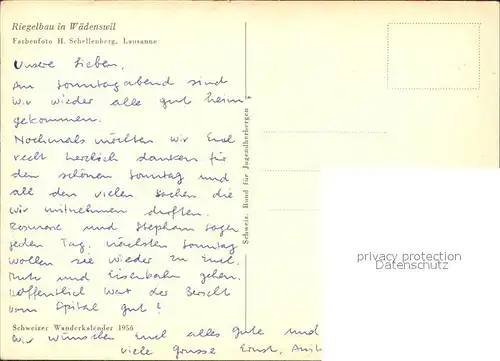 Riegelbau in Wädenswil
Farbenfoto H. Schellenberg, Lausanne
Unsere Lieben,
Am Sonntagabend sind
wir wieder alle gut heim
gekommen.
Nochmals möchten wir Euch
recht herzlich danken für
den schönen Sonntag und
all den vielen Sachen die
wir mitnehmen durften.
Rosmarie und Stephan sagen
jeden Tag, nächsten Sonntag
wollen sie wieder zu Euch,
und Eisenbahn gehen.
Hoffentlich war der Bericht
vom Spital gut?
Schweizer Wanderkalender 1956
Wir wünschen Euch alles Gute und
viele Grüsse Ernst,
Schweiz. Bund für Jugendherbergen
privacy protection
Datenschutz